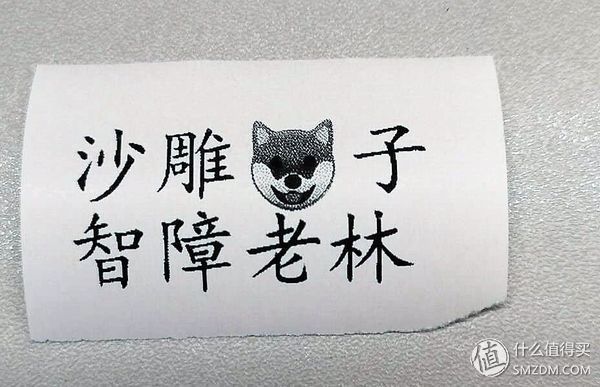 沙雕🐶子
智障老林
值 什么值得买
SMZDM.COM